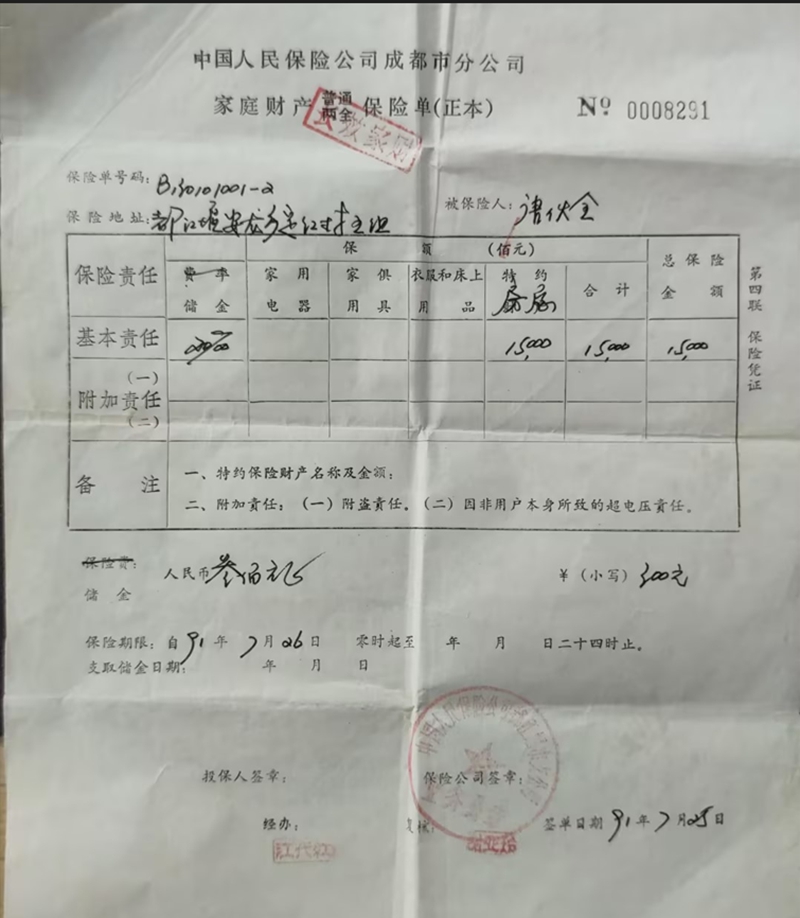 中国人民保险公司成都市分公司
家庭财产 普通 两全 保险单(正本) Nº 0008291
保险单号码:
保险地址: 都江堰安龙乡 被保险人:
保险责任 费率 储金 保额 (佰元) 总保险金额
家用电器 家俱用具 衣服和床上用品 特约 房屋 合计
基本责任 15,000 15,000 15,000
附加责任 (一) (二)
备注 一、特约保险财产名称及金额:
二、附加责任:(一)附盗责任。(二)因非用户本身所致的超电压责任。
第四联 保险凭证
保险费:
储金 人民币叁佰元 ¥(小写) 300元
保险期限:自91年7月26日 零时起至 年 月 日二十四时止。
支取储金日期: 年 月 日
投保人签章: 保险公司签章:
经办: 复核: 签单日期 91年7月25日